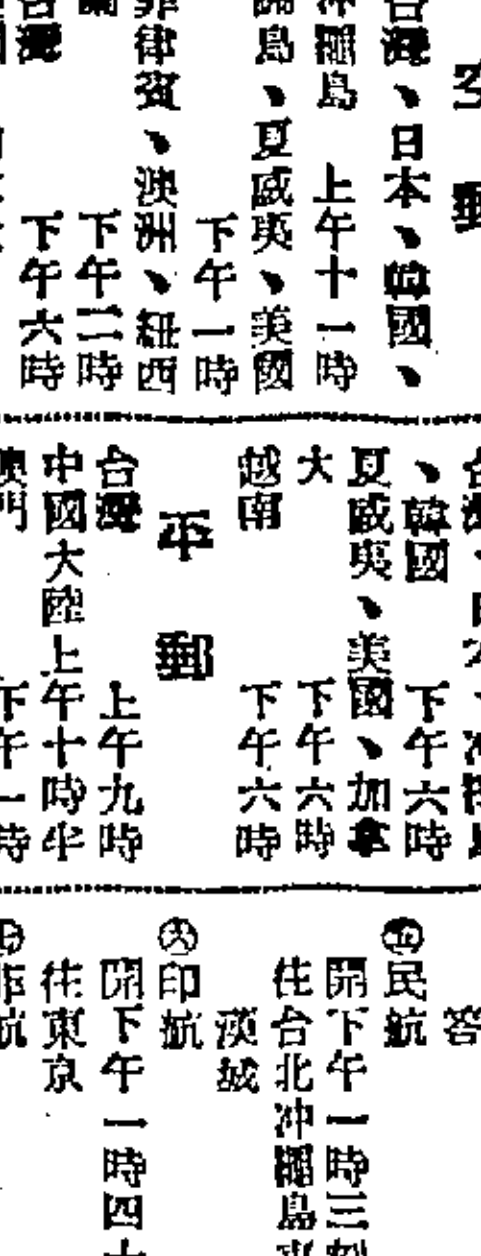 空郵
台灣、日本、韓國、
沖繩島　上午十一時
島、夏威夷、美國
下午一時
菲律賓、澳洲、紐西
蘭　下午二時
台灣　下午六時
台灣、日本、沖繩島
、韓國　下午六時
夏威夷、美國、加拿
大　下午六時
越南　下午六時
平郵
台灣　上午九時
中國大陸上午十時半
澳門　下午一時
答
㊄民航
開下午一時三刻
往台北沖繩島東
漢城
㊅印航
開下午一時四十
往東京
航